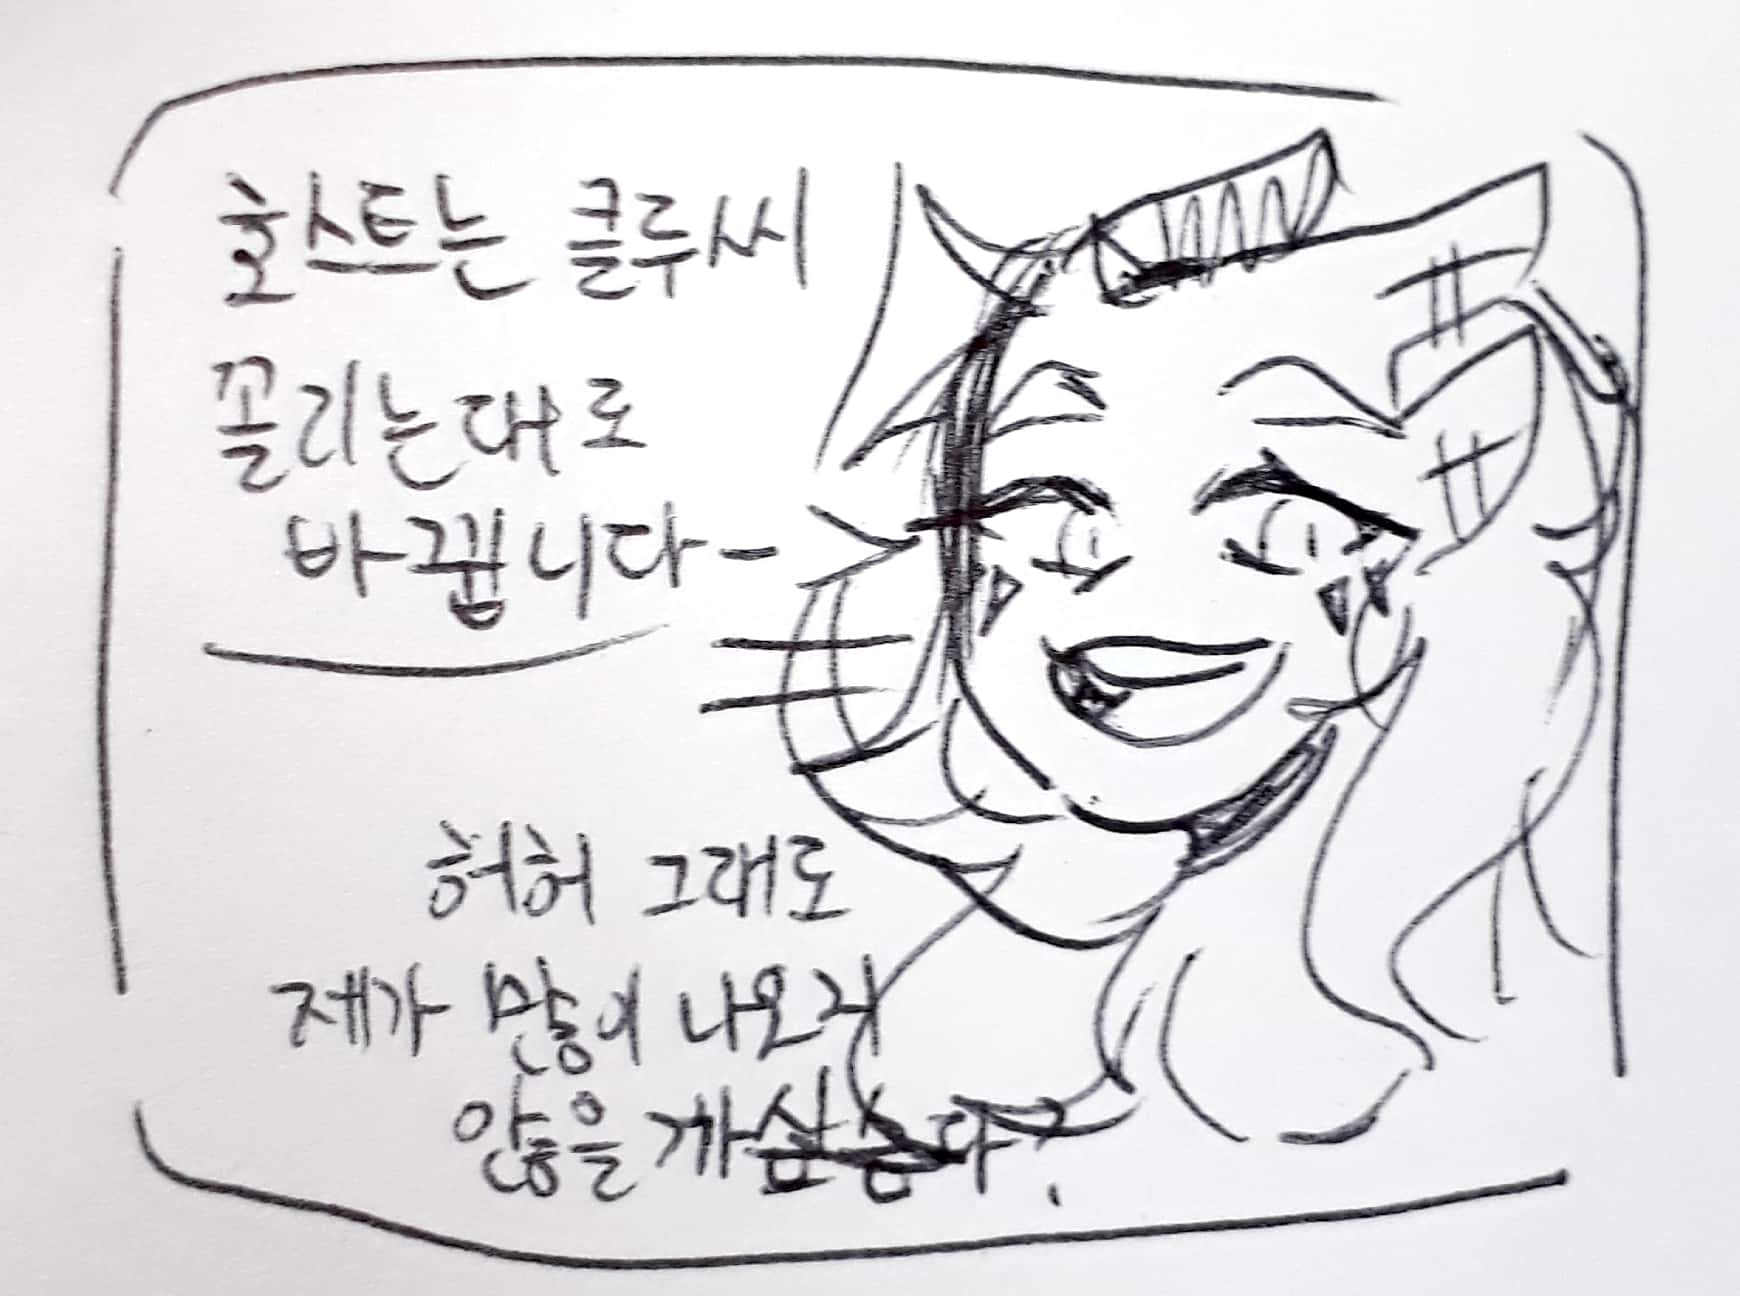 호스트는 클루씨
꼴리는대로
바뀝니다-
허허 그래도
제가 많이 나오지
않을까 싶습니다?